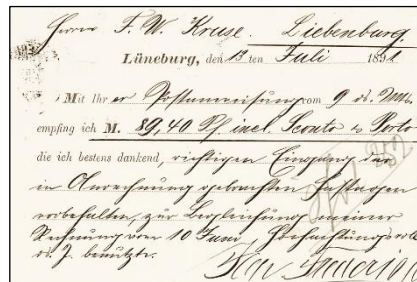 Herrn F. W. Kruse, Liebenburg
Lüneburg, den 13ten Juli 1891
Mit Ihrer Postanweisung vom 9 ds. Mts.
empfing ich M. 89,40 Pf. incl. Sconto & Porto
die ich bestens dankend, richtigen Eingang der
in Anrechnung gebrachten Fastagen
vorbehalten, zur Begleichung meiner
Rechnung vom 10 Juni Hochachtungsvoll
ds. J. benutzte.